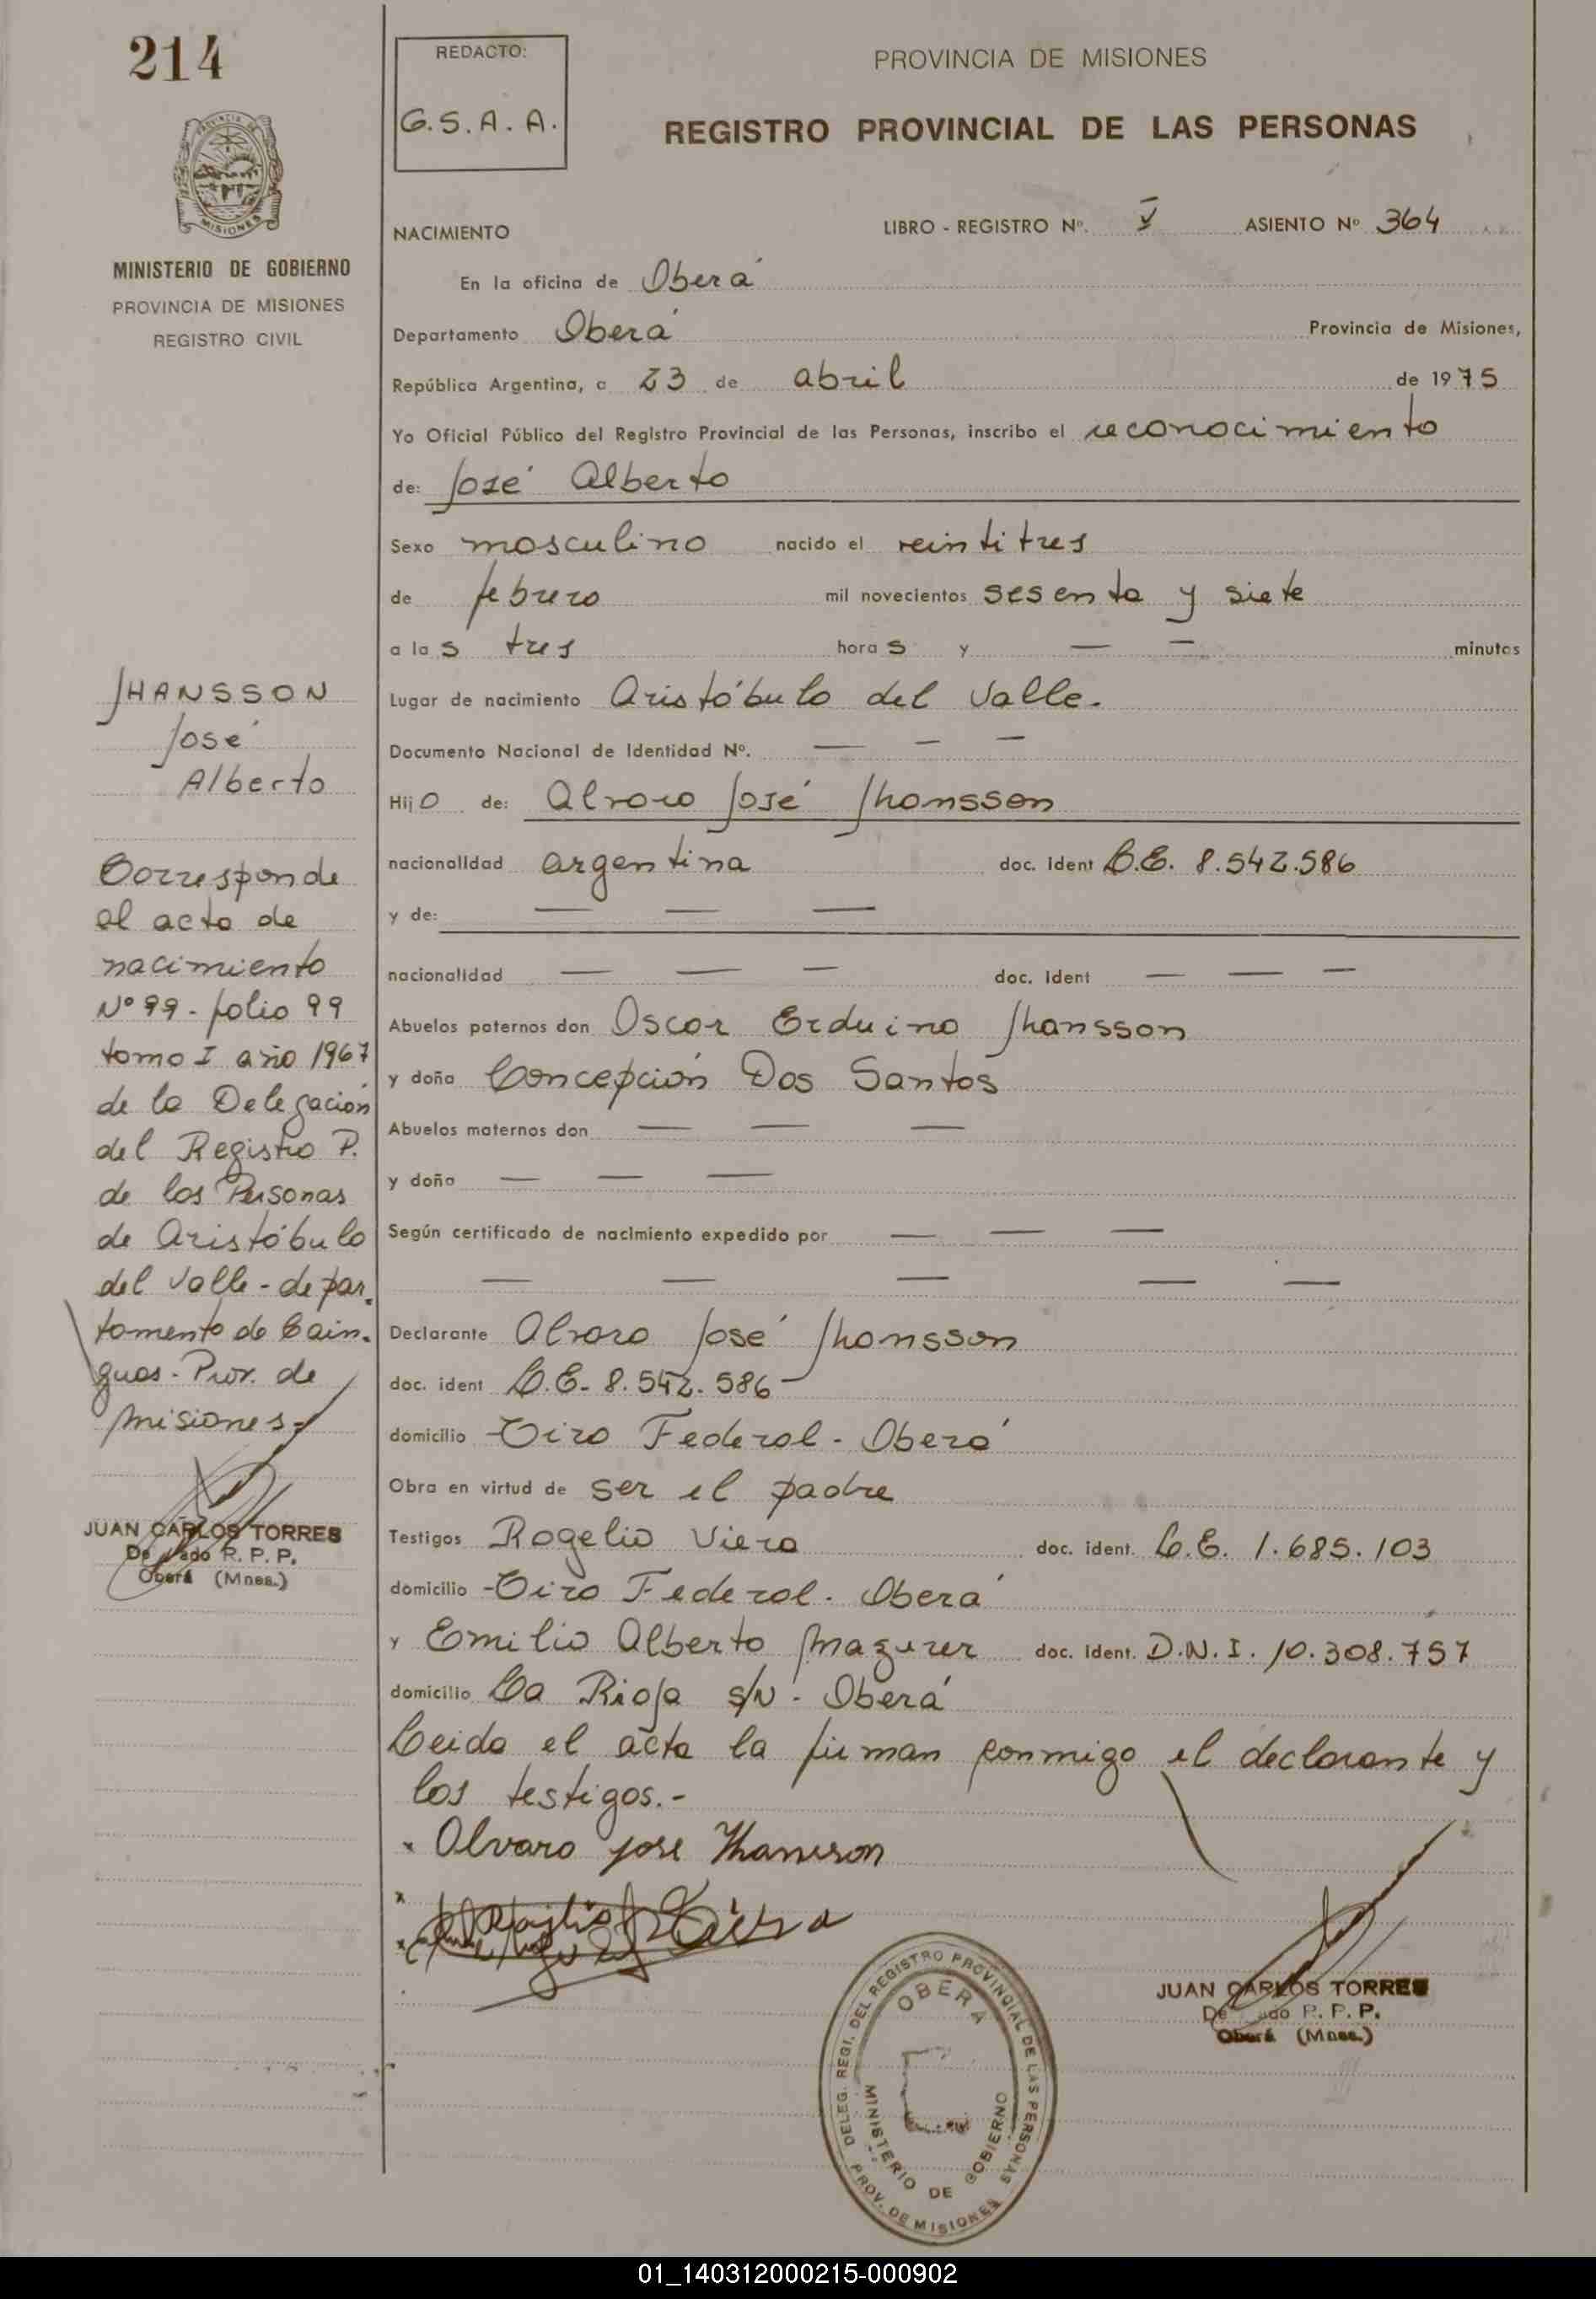 214
MINISTERIO DE GOBIERNO
PROVINCIA DE MISIONES
REGISTRO CIVIL
REDACTO:
G.S.A.A.
PROVINCIA DE MISIONES
REGISTRO PROVINCIAL DE LAS PERSONAS
NACIMIENTO
LIBRO - REGISTRO Nº. V ASIENTO Nº 364
En la oficina de Oberá
Departamento Oberá Provincia de Misiones,
República Argentina, a 23 de abril de 1975
Yo Oficial Público del Registro Provincial de las Personas, inscribo el reconocimiento
de: José Alberto
Sexo masculino nacido el veintitres
de febrero mil novecientos sesenta y siete
a las tres horas y — — minutos
Lugar de nacimiento Aristóbulo del Valle.
Documento Nacional de Identidad Nº. — — —
Hijo de: Alvaro José Jhansson
nacionalidad argentina doc. ident L.E. 8.542.586
y de: — — —
nacionalidad — — — doc. ident — — —
Abuelos paternos don Oscar Erduino Jhansson
y doña Concepción Dos Santos
Abuelos maternos don — — —
y doña — — —
Según certificado de nacimiento expedido por — — —
— — — — —
Declarante Alvaro José Jhansson
doc. ident L.E. 8.542.586
domicilio Tiro Federal - Oberá
Obra en virtud de ser el padre
Testigos Rogelio Viera doc. ident. L.E. 1.685.103
domicilio Tiro Federal - Oberá
y Emilio Alberto Mazurer doc. ident. D.N.I. 10.308.757
domicilio La Rioja s/N - Oberá
Leida el acta la firman conmigo el declarante y
los testigos.-
x Alvaro jose Jhansson
JUAN CARLOS TORRES
R. P. P.
Oberá (Mnes.)
DELEG. REGI. DEL REGISTRO PROVINCIAL DE LAS PERSONAS
OBERA
MINISTERIO DE GOBIERNO
PROV. DE MISIONES
JHANSSON
José
Alberto
Corresponde
al acta de
nacimiento
Nº 99 - folio 99
tomo I año 1967
de la Delegación
del Registro P.
de las Personas
de Aristóbulo
del Valle - depar
tamento de Cain-
guas - Prov. de
Misiones-
JUAN CARLOS TORRES
R. P. P.
Oberá (Mnes.)
01_140312000215-000902